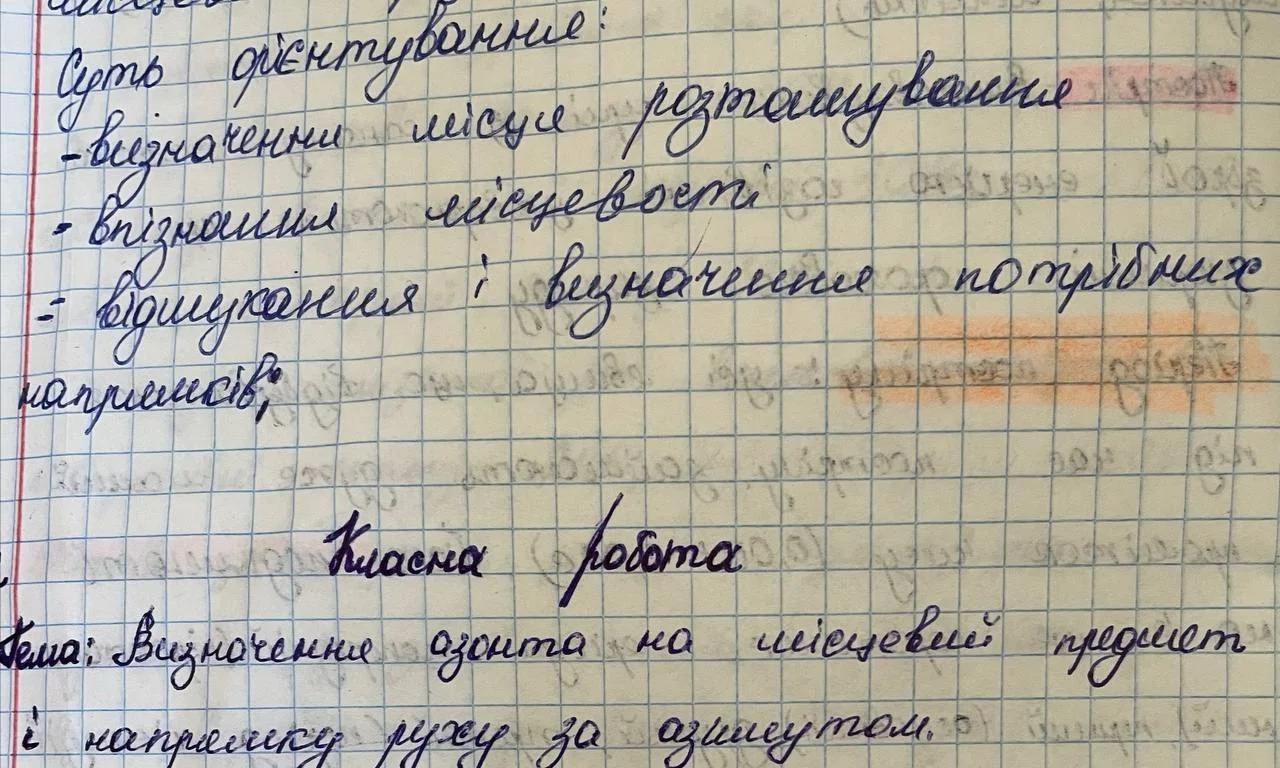 Суть орієнтування:
- визначення місця розташування
- впізнання місцевості
- відшукання і визначення потрібних
напрямків;
Класна робота
Тема: Визначення азонта на місцевий предмет
і напрямку руху за азимутом.